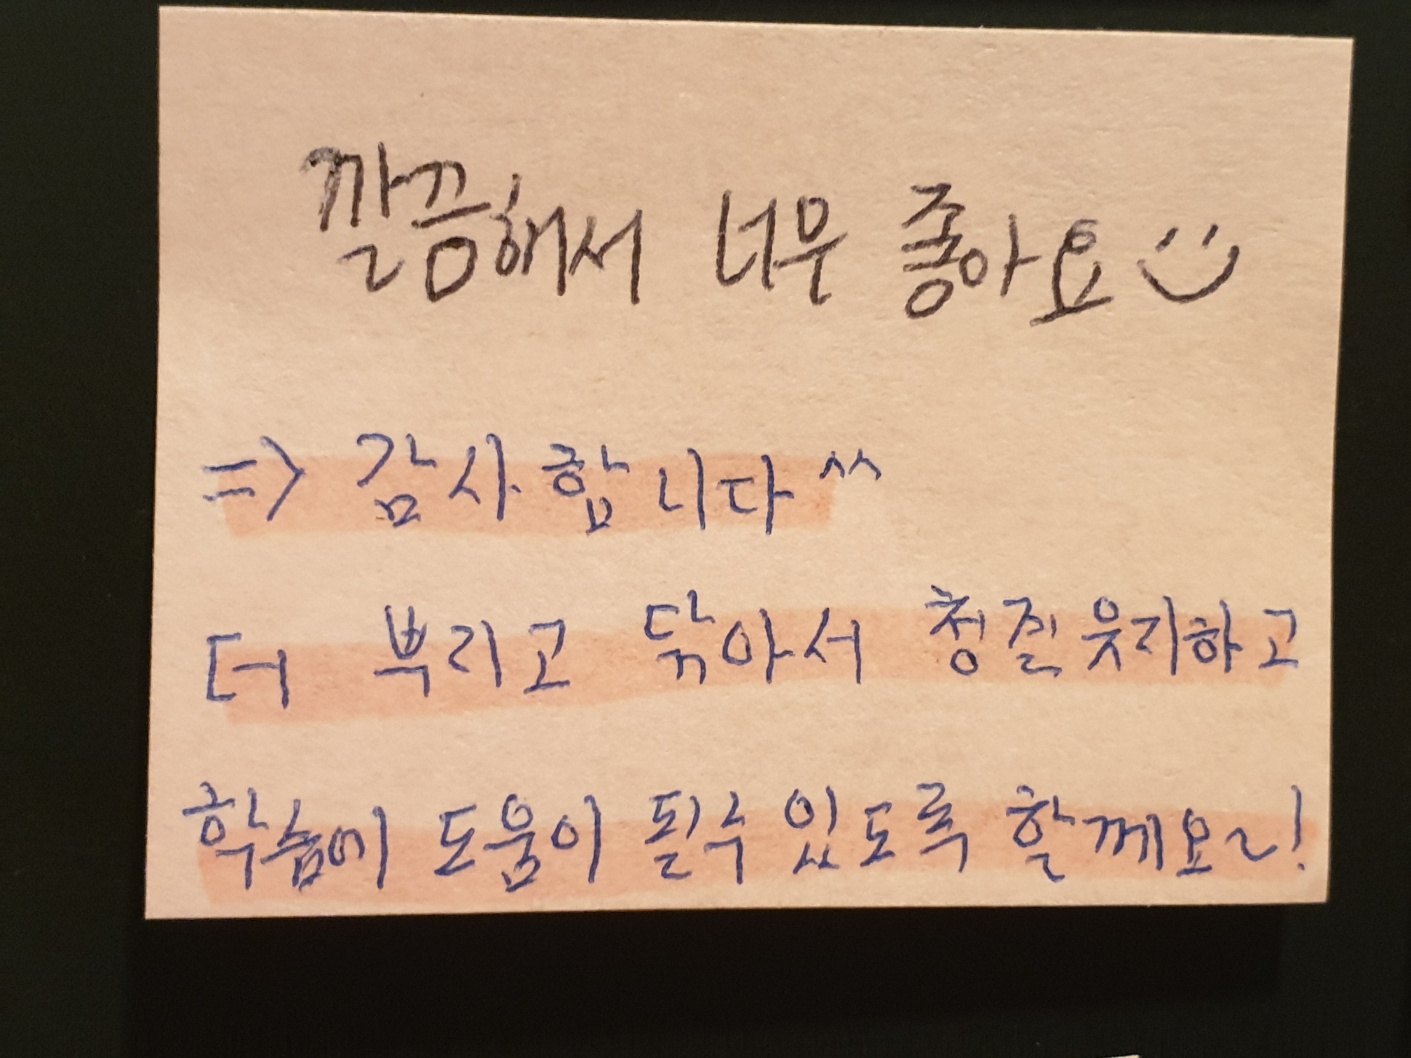 깔끔해서 너무 좋아요
=> 감사합니다 ^^
더 뿌리고 닦아서 청결 유지하고
학습에 도움이 될수 있도록 할께요~!